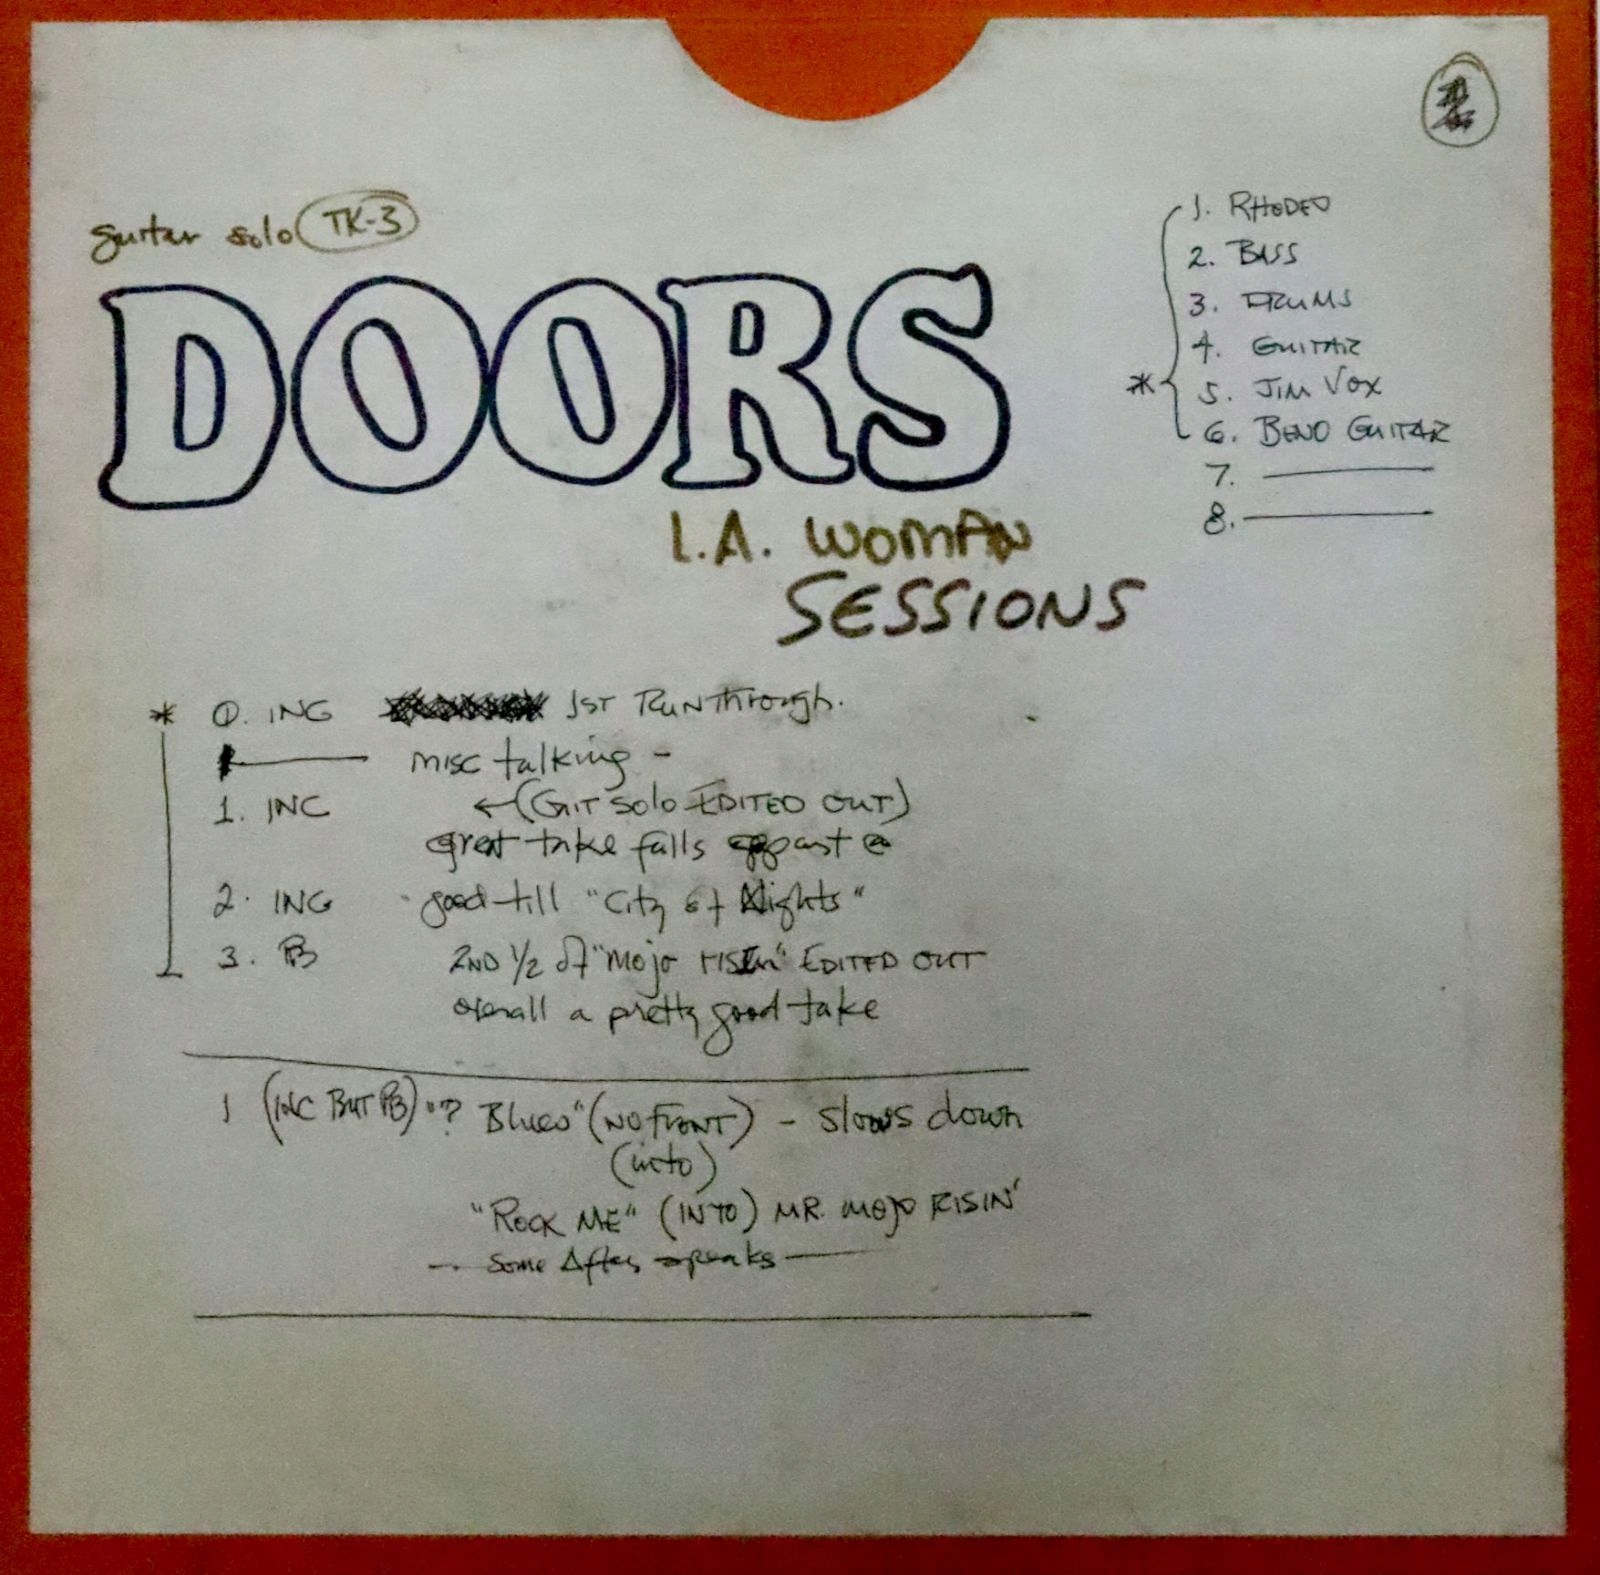 guitar solo TK-3
DOORS
L.A. WOMAN
SESSIONS
1. RHODES
2. BASS
3. DRUMS
4. GUITAR
* 5. JIM VOX
6. BENO GUITAR
7.
8.
* 0. INC 1ST RUNThrough.
misc talking -
1. INC ←(GIT SOLO EDITED OUT)
great take falls appart @
2. INC good till "City of Nights"
3. PB 2ND 1/2 of "Mojo risin" EDITED OUT
overall a pretty good take
1 (INC BUT PB) "? Blues" (NO FRONT) - slows down
(into)
"ROCK ME" (INTO) MR. MOJO RISIN'
Some After speaks